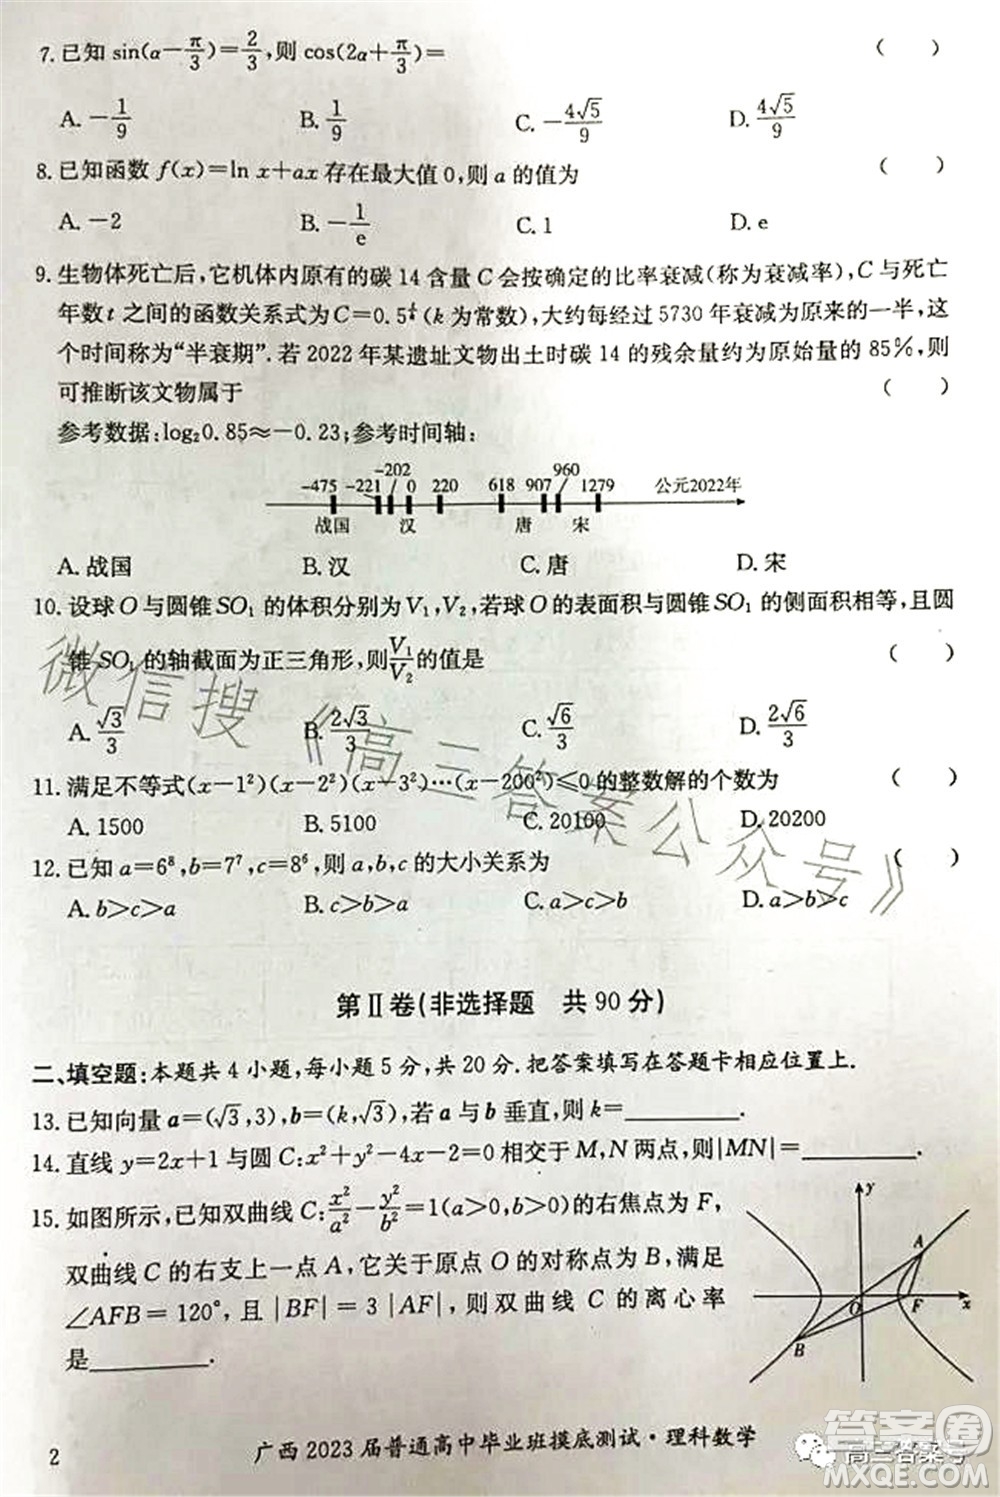 7. 已知 sin(α−π/3)=2/3,则 cos(2α+π/3)= ( )
A. −1/9 B. 1/9 C. −4√5/9 D. 4√5/9
8. 已知函数 f(x)=ln x+ax 存在最大值 0,则 a 的值为 ( )
A. −2 B. −1/e C. 1 D. e
9. 生物体死亡后,它机体内原有的碳 14 含量 C 会按确定的比率衰减(称为衰减率),C 与死亡
年数 t 之间的函数关系式为 C=0.5^(t/k) (k 为常数),大约每经过 5730 年衰减为原来的一半,这
个时间称为“半衰期”.若 2022 年某遗址文物出土时碳 14 的残余量约为原始量的 85%,则
可推断该文物属于 ( )
参考数据:log₂0.85≈−0.23;参考时间轴:
-475 -221 -202 0 220 618 907 960 1279 公元2022年
战国 汉 唐 宋
A. 战国 B. 汉 C. 唐 D. 宋
10. 设球 O 与圆锥 SO₁ 的体积分别为 V₁,V₂,若球 O 的表面积与圆锥 SO₁ 的侧面积相等,且圆
锥 SO₁ 的轴截面为正三角形,则 V₁/V₂ 的值是 ( )
A. √3/3 B. 2√3/3 C. √6/3 D. 2√6/3
11. 满足不等式(x−1²)(x−2²)(x−3²)…(x−200²)≤0 的整数解的个数为 ( )
A. 1500 B. 5100 C. 20100 D. 20200
12. 已知 a=6⁸,b=7⁷,c=8⁶,则 a,b,c 的大小关系为 ( )
A. b>c>a B. c>b>a C. a>c>b D. a>b>c
微信搜《高三答案公众号》
第Ⅱ卷(非选择题 共 90 分)
二、填空题:本题共 4 小题,每小题 5 分,共 20 分.把答案填写在答题卡相应位置上.
13. 已知向量 a=(√3,3),b=(k,√3),若 a 与 b 垂直,则 k=________.
14. 直线 y=2x+1 与圆 C:x²+y²−4x−2=0 相交于 M,N 两点,则|MN|=________.
15. 如图所示,已知双曲线 C:x²/a²−y²/b²=1(a>0,b>0)的右焦点为 F,
双曲线 C 的右支上一点 A,它关于原点 O 的对称点为 B,满足
∠AFB=120°,且|BF|=3|AF|,则双曲线 C 的离心率
是________.
y A O F x B
2 广西 2023 届普通高中毕业班摸底测试·理科数学
高三答案号
答案圈
MXQE.COM